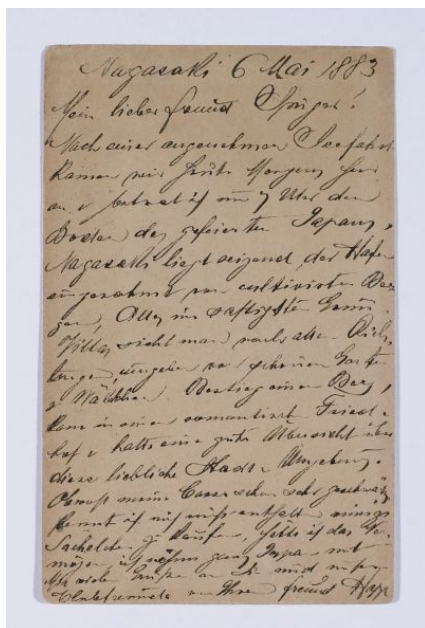 Nagasaki 6 Mai 1883
Mein lieber Freund Spörry!
Nach einer angenehmen Seefahrt
kamen wir heute Morgens hier
an & betrat ich um 7 Uhr den
Boden des gefeierten Japans,
Nagasaki liegt reizend, der Hafen
eingerahmt von cultivirten Ber
gen, Alles im saftigsten Grün.
Villas sieht man nach allen Rich-
tungen, umgeben von schönen Garten
& Wäldchen. Bestieg einen Berg,
kam in einen romantisch Fried-
hof & hatte eine gute Übersicht über
diese liebliche Stadt & Umgebung.
Obwohl meine Casse schon sehr geschwächt
konnt ich mich nicht enthalten einige
Sächelchen zu kaufen, hätte ich das Ver-
mögen, ich nehme ganz Japan mit
viele Grüße an Sie und unsere
Clubfreunde von Ihrem Freund